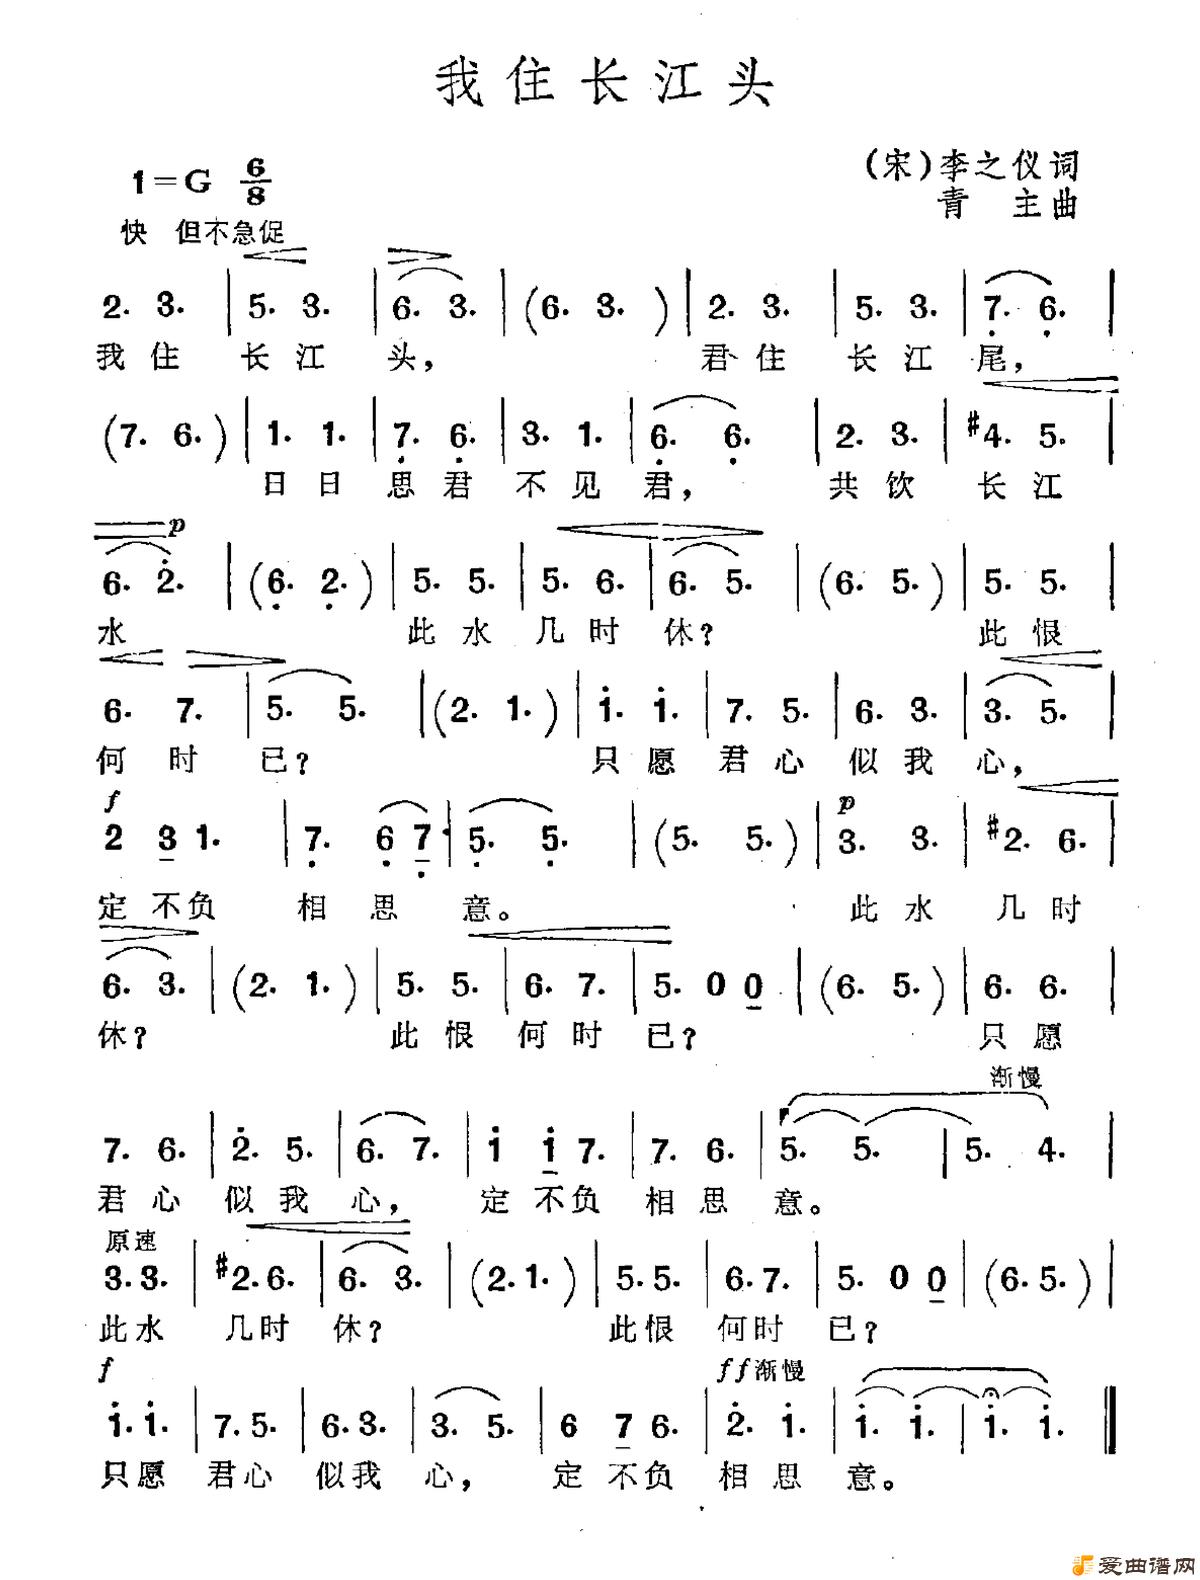 我住长江头
1=G 6/8
(宋)李之仪词
青 主曲
快 但不急促
2. 3. | 5. 3. | 6. 3. | (6. 3.) | 2. 3. | 5. 3. | 7. 6. |
我 住 长 江 头, 君 住 长 江 尾,
(7. 6.) | 1. 1. | 7. 6. | 3. 1. | 6. 6. | 2. 3. | #4. 5. |
日 日 思 君 不 见 君, 共 饮 长 江
p
6. 2. | (6. 2.) | 5. 5. | 5. 6. | 6. 5. | (6. 5.) | 5. 5. |
水 此 水 几 时 休? 此 恨
6. 7. | 5. 5. | (2. 1.) | 1. 1. | 7. 5. | 6. 3. | 3. 5. |
何 时 已? 只 愿 君 心 似 我 心,
f p
2 3 1. | 7. 6 7 | 5. 5. | (5. 5.) | 3. 3. | #2. 6. |
定 不 负 相 思 意。 此 水 几 时
6. 3. | (2. 1.) | 5. 5. | 6. 7. | 5. 0 0 | (6. 5.) | 6. 6. |
休? 此 恨 何 时 已? 只 愿
渐慢
7. 6. | 2. 5. | 6. 7. | 1 1 7. | 7. 6. | 5. 5. | 5. 4. |
君 心 似 我 心, 定 不 负 相 思 意。
原速
3. 3. | #2. 6. | 6. 3. | (2. 1.) | 5. 5. | 6. 7. | 5. 0 0 | (6. 5.) |
此 水 几 时 休? 此 恨 何 时 已?
f ff 渐慢
1. 1. | 7. 5. | 6. 3. | 3. 5. | 6 7 6. | 2. 1. | 1. 1. | 1. 1. ‖
只 愿 君 心 似 我 心, 定 不 负 相 思 意。
爱曲谱网